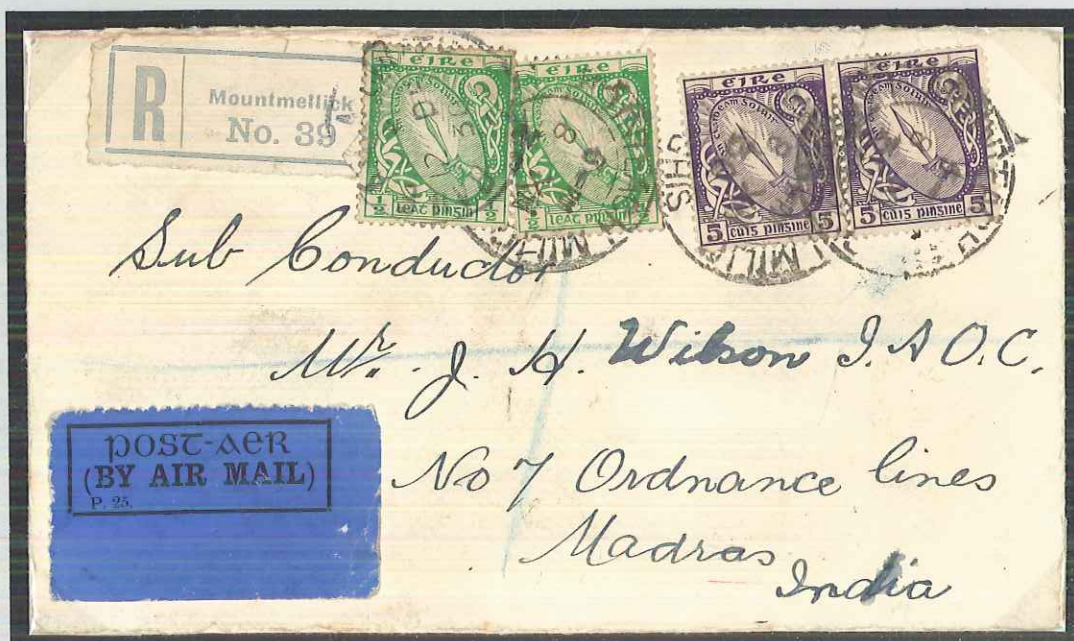 R
Mountmellick
No. 39
éire
½ leat pingin ½
éire
½ leat pingin ½
éire
5 cúig pingine 5
éire
5 cúig pingine 5
Sub Conductor
Mr. J. H. Wilson I.A.O.C.
No 7 Ordnance lines
Madras
India
post-aer
(BY AIR MAIL)
P. 25.